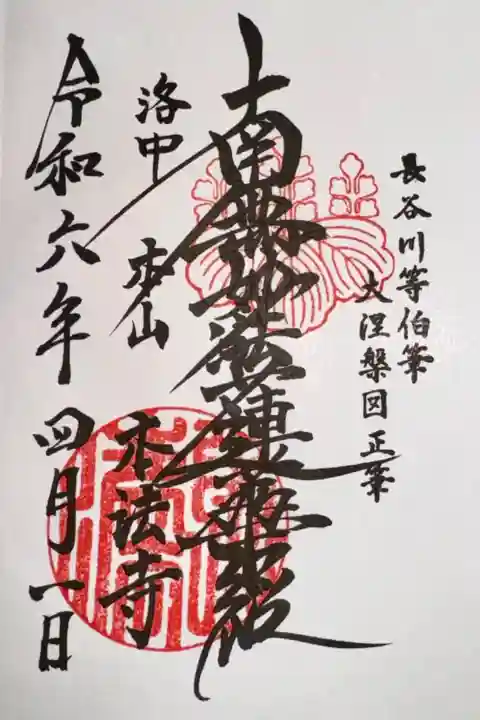 長谷川等伯筆
大涅槃図 正筆
南無妙法蓮華経
洛中
本山
本法寺
令和六年 四月一日